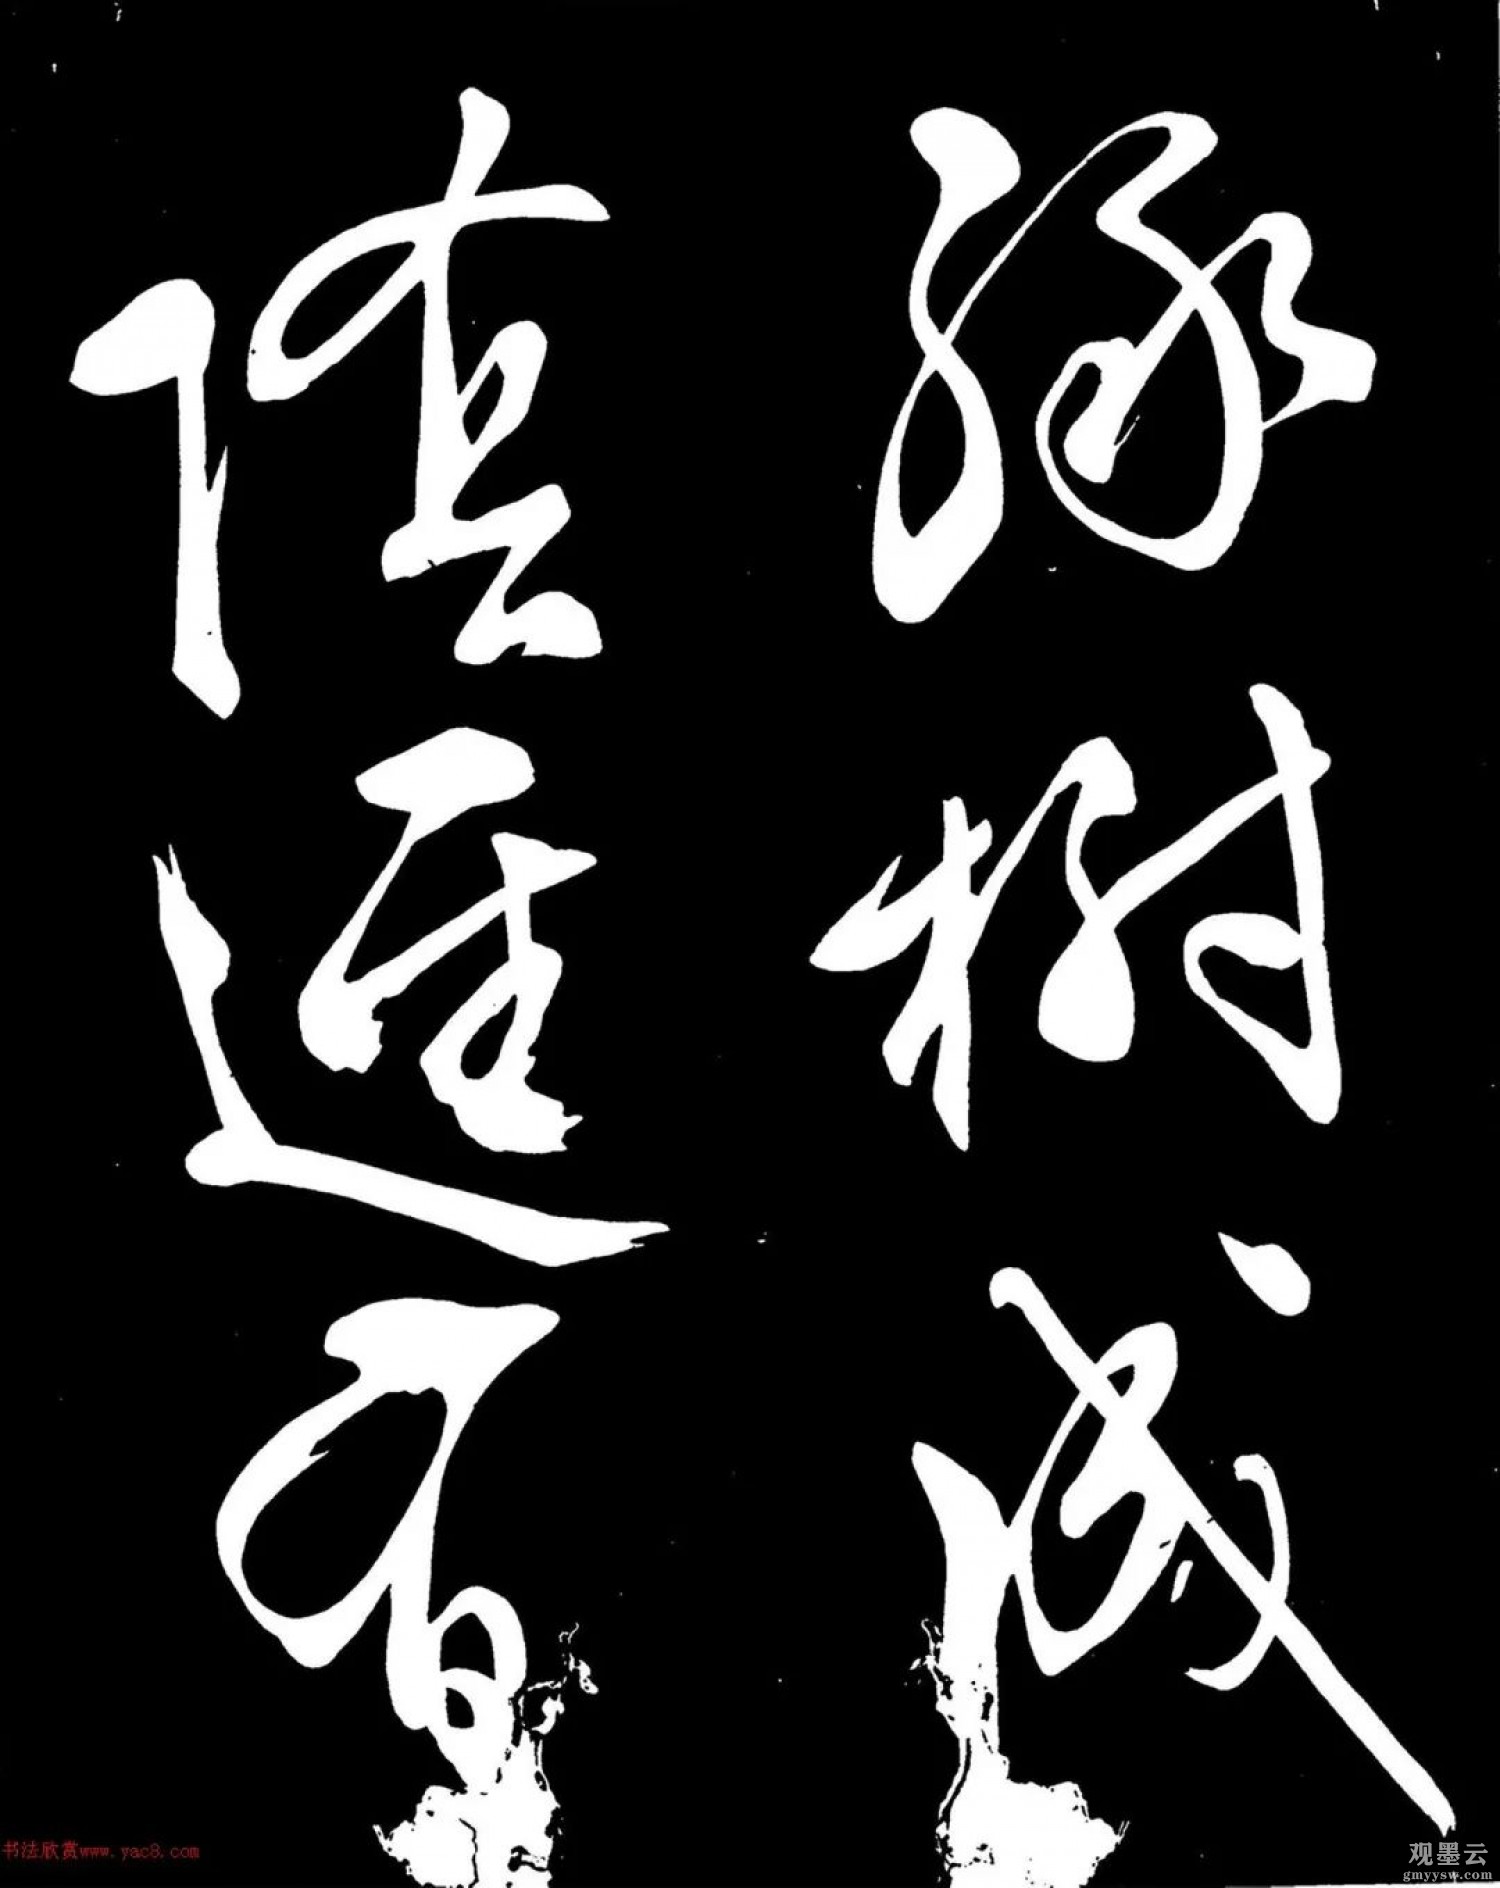 綠樹成
進有
书法欣赏www.yac8.com
观墨云
gmyysw.com